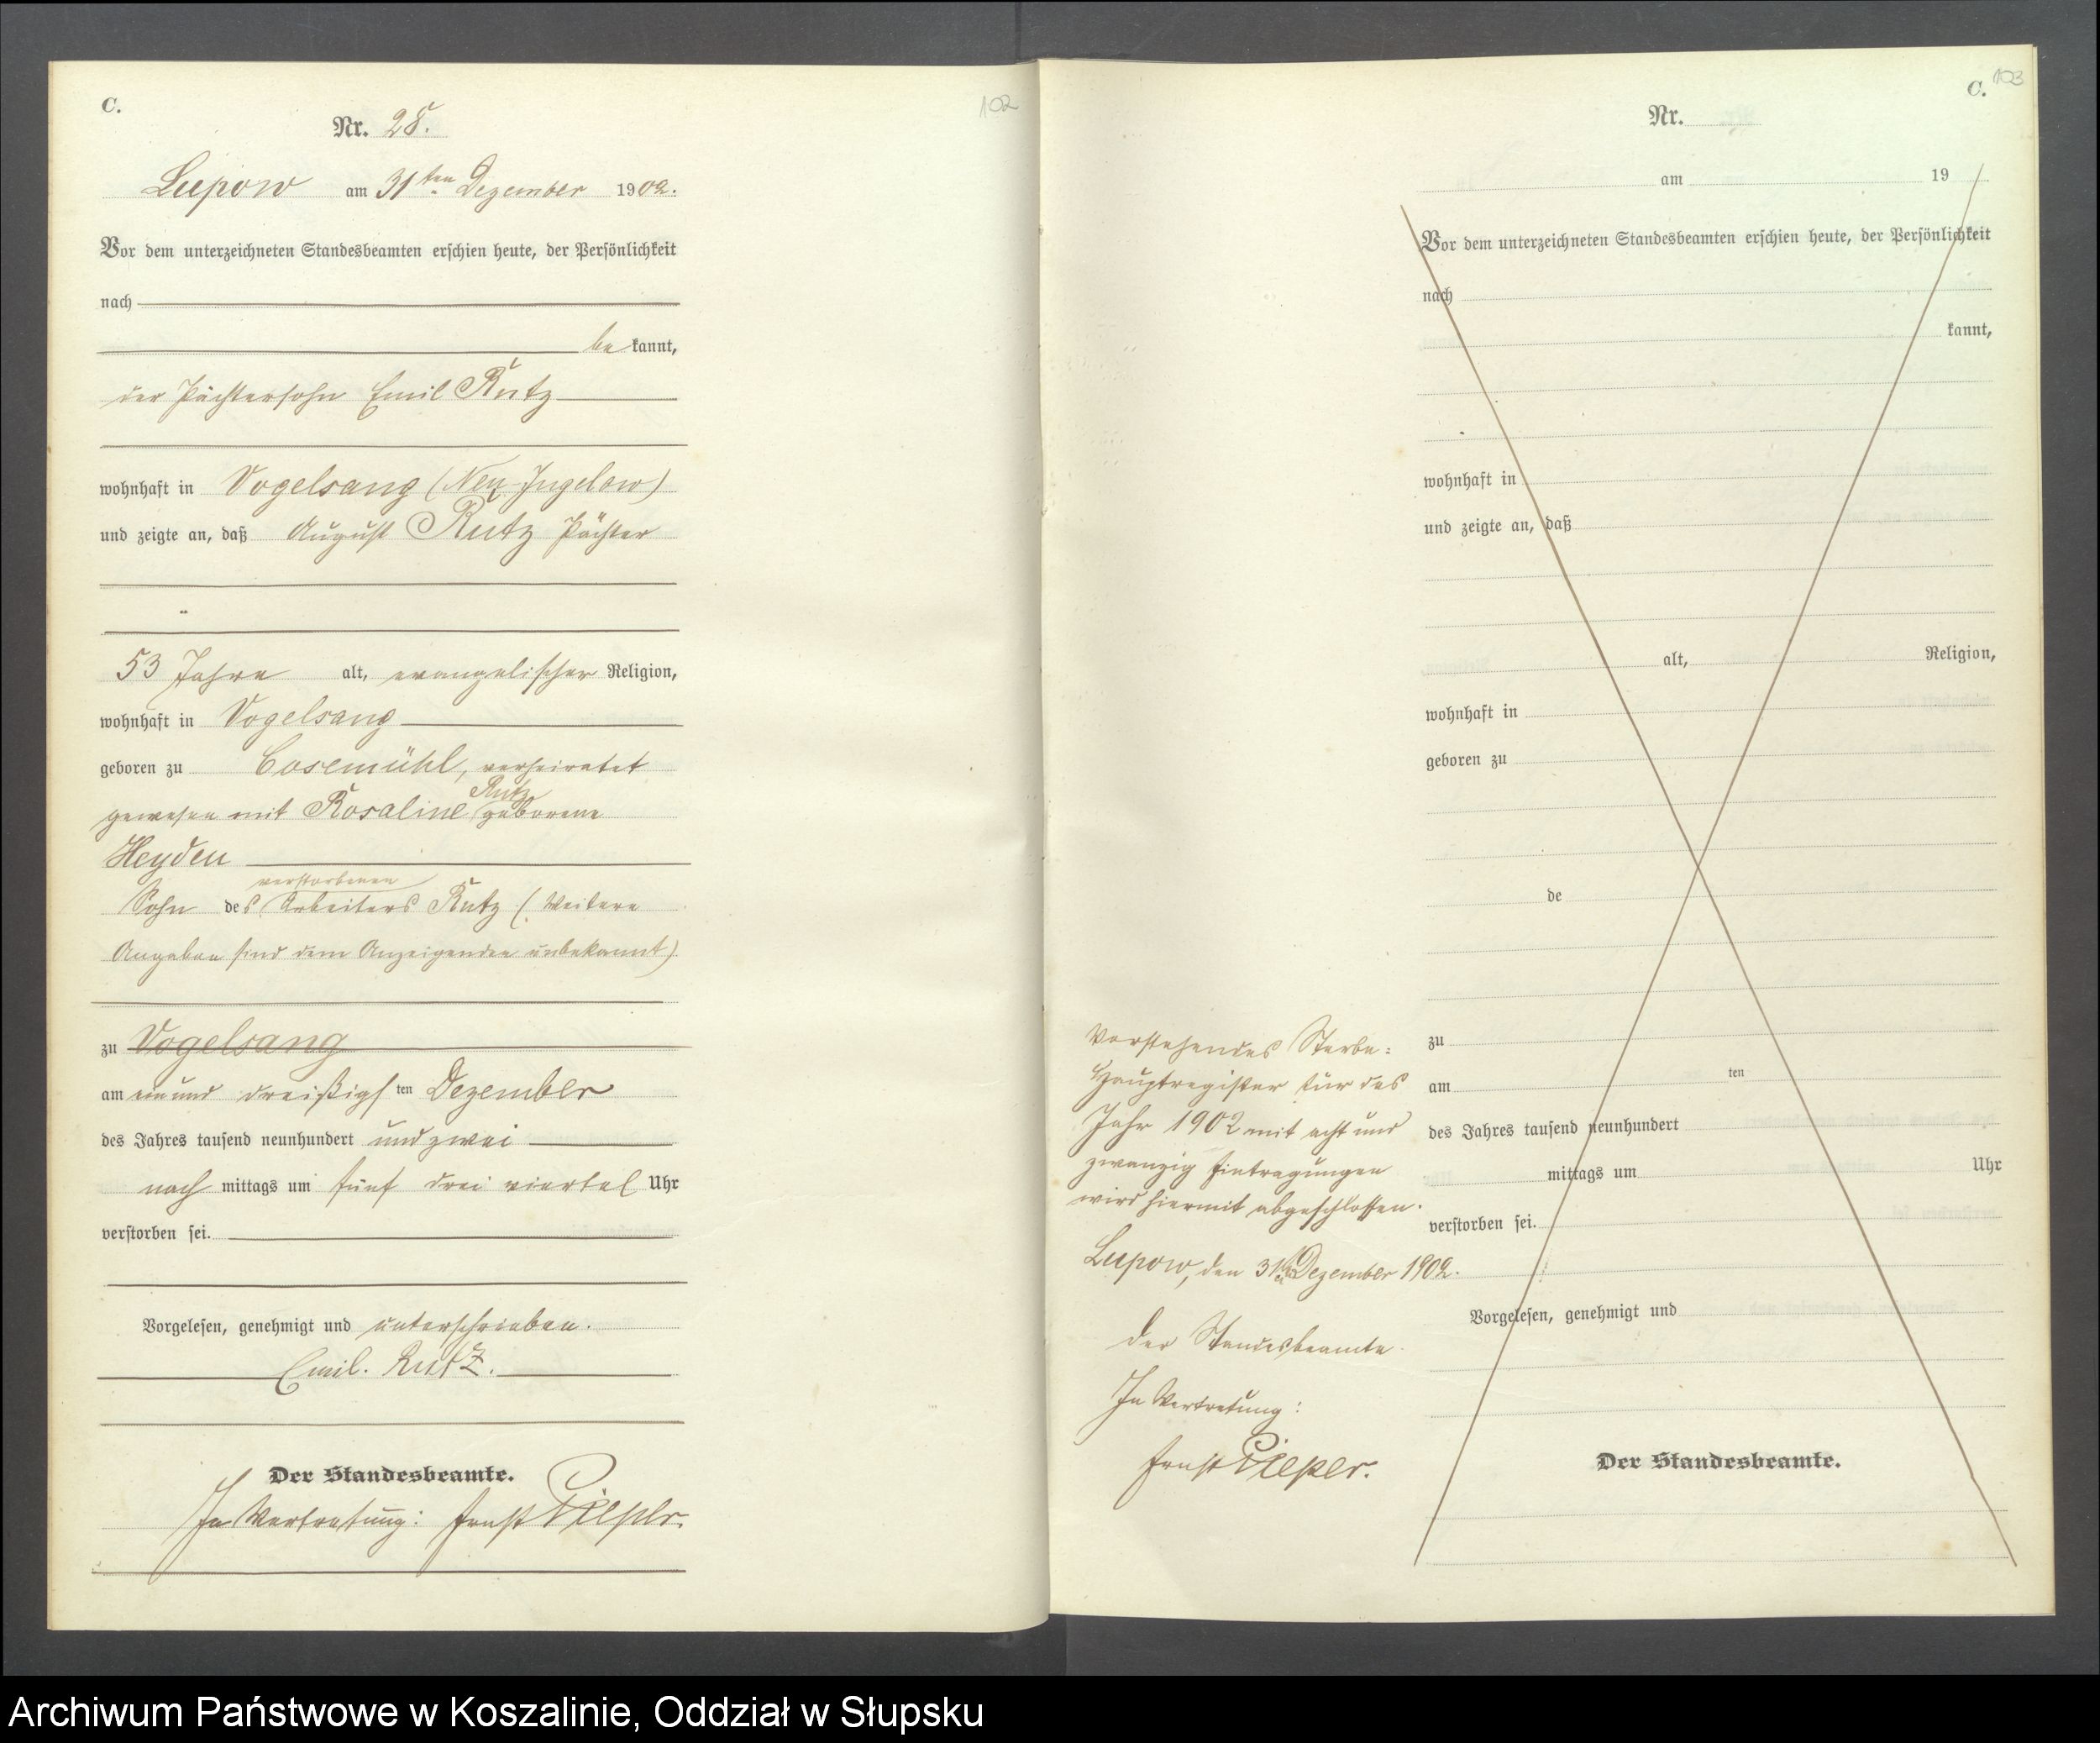 C.
102
Nr. 28.
Lupow am 31ten Dezember 1902.
Vor dem unterzeichneten Standesbeamten erschien heute, der Persönlichkeit
nach
be kannt,
der Pächtersohn Emil Rutz
wohnhaft in Vogelsang (Neu-Jugelow)
und zeigte an, daß August Rutz Pächter
53 Jahre alt, evangelischer Religion,
wohnhaft in Vogelsang
geboren zu Cosemühl, verheiratet
gewesen mit Rosaline Rutz geborene
Heyden
Sohn des verstorbenen Arbeiters Rutz (Weitere
Angaben sind dem Anzeigenden unbekannt)
zu Vogelsang
am ein und dreißigsten Dezember
des Jahres tausend neunhundert und zwei
nach mittags um fünf drei viertel Uhr
verstorben sei.
Vorgelesen, genehmigt und unterschrieben.
Emil. Rutz.
Der Standesbeamte.
In Vertretung: Ernst Pieper.
C. 103
Nr.
am 19
Vor dem unterzeichneten Standesbeamten erschien heute, der Persönlichkeit
nach
kannt,
wohnhaft in
und zeigte an, daß
alt, Religion,
wohnhaft in
geboren zu
de
zu
am ten
des Jahres tausend neunhundert
mittags um Uhr
verstorben sei.
Vorgelesen, genehmigt und
Der Standesbeamte.
Vorstehendes Sterbe-
Hauptregister für das
Jahr 1902 mit acht und
zwanzig Eintragungen
wird hiermit abgeschlossen.
Lupow, den 31ten Dezember 1902.
Der Standesbeamte.
In Vertretung:
Ernst Pieper.
Archiwum Państwowe w Koszalinie, Oddział w Słupsku